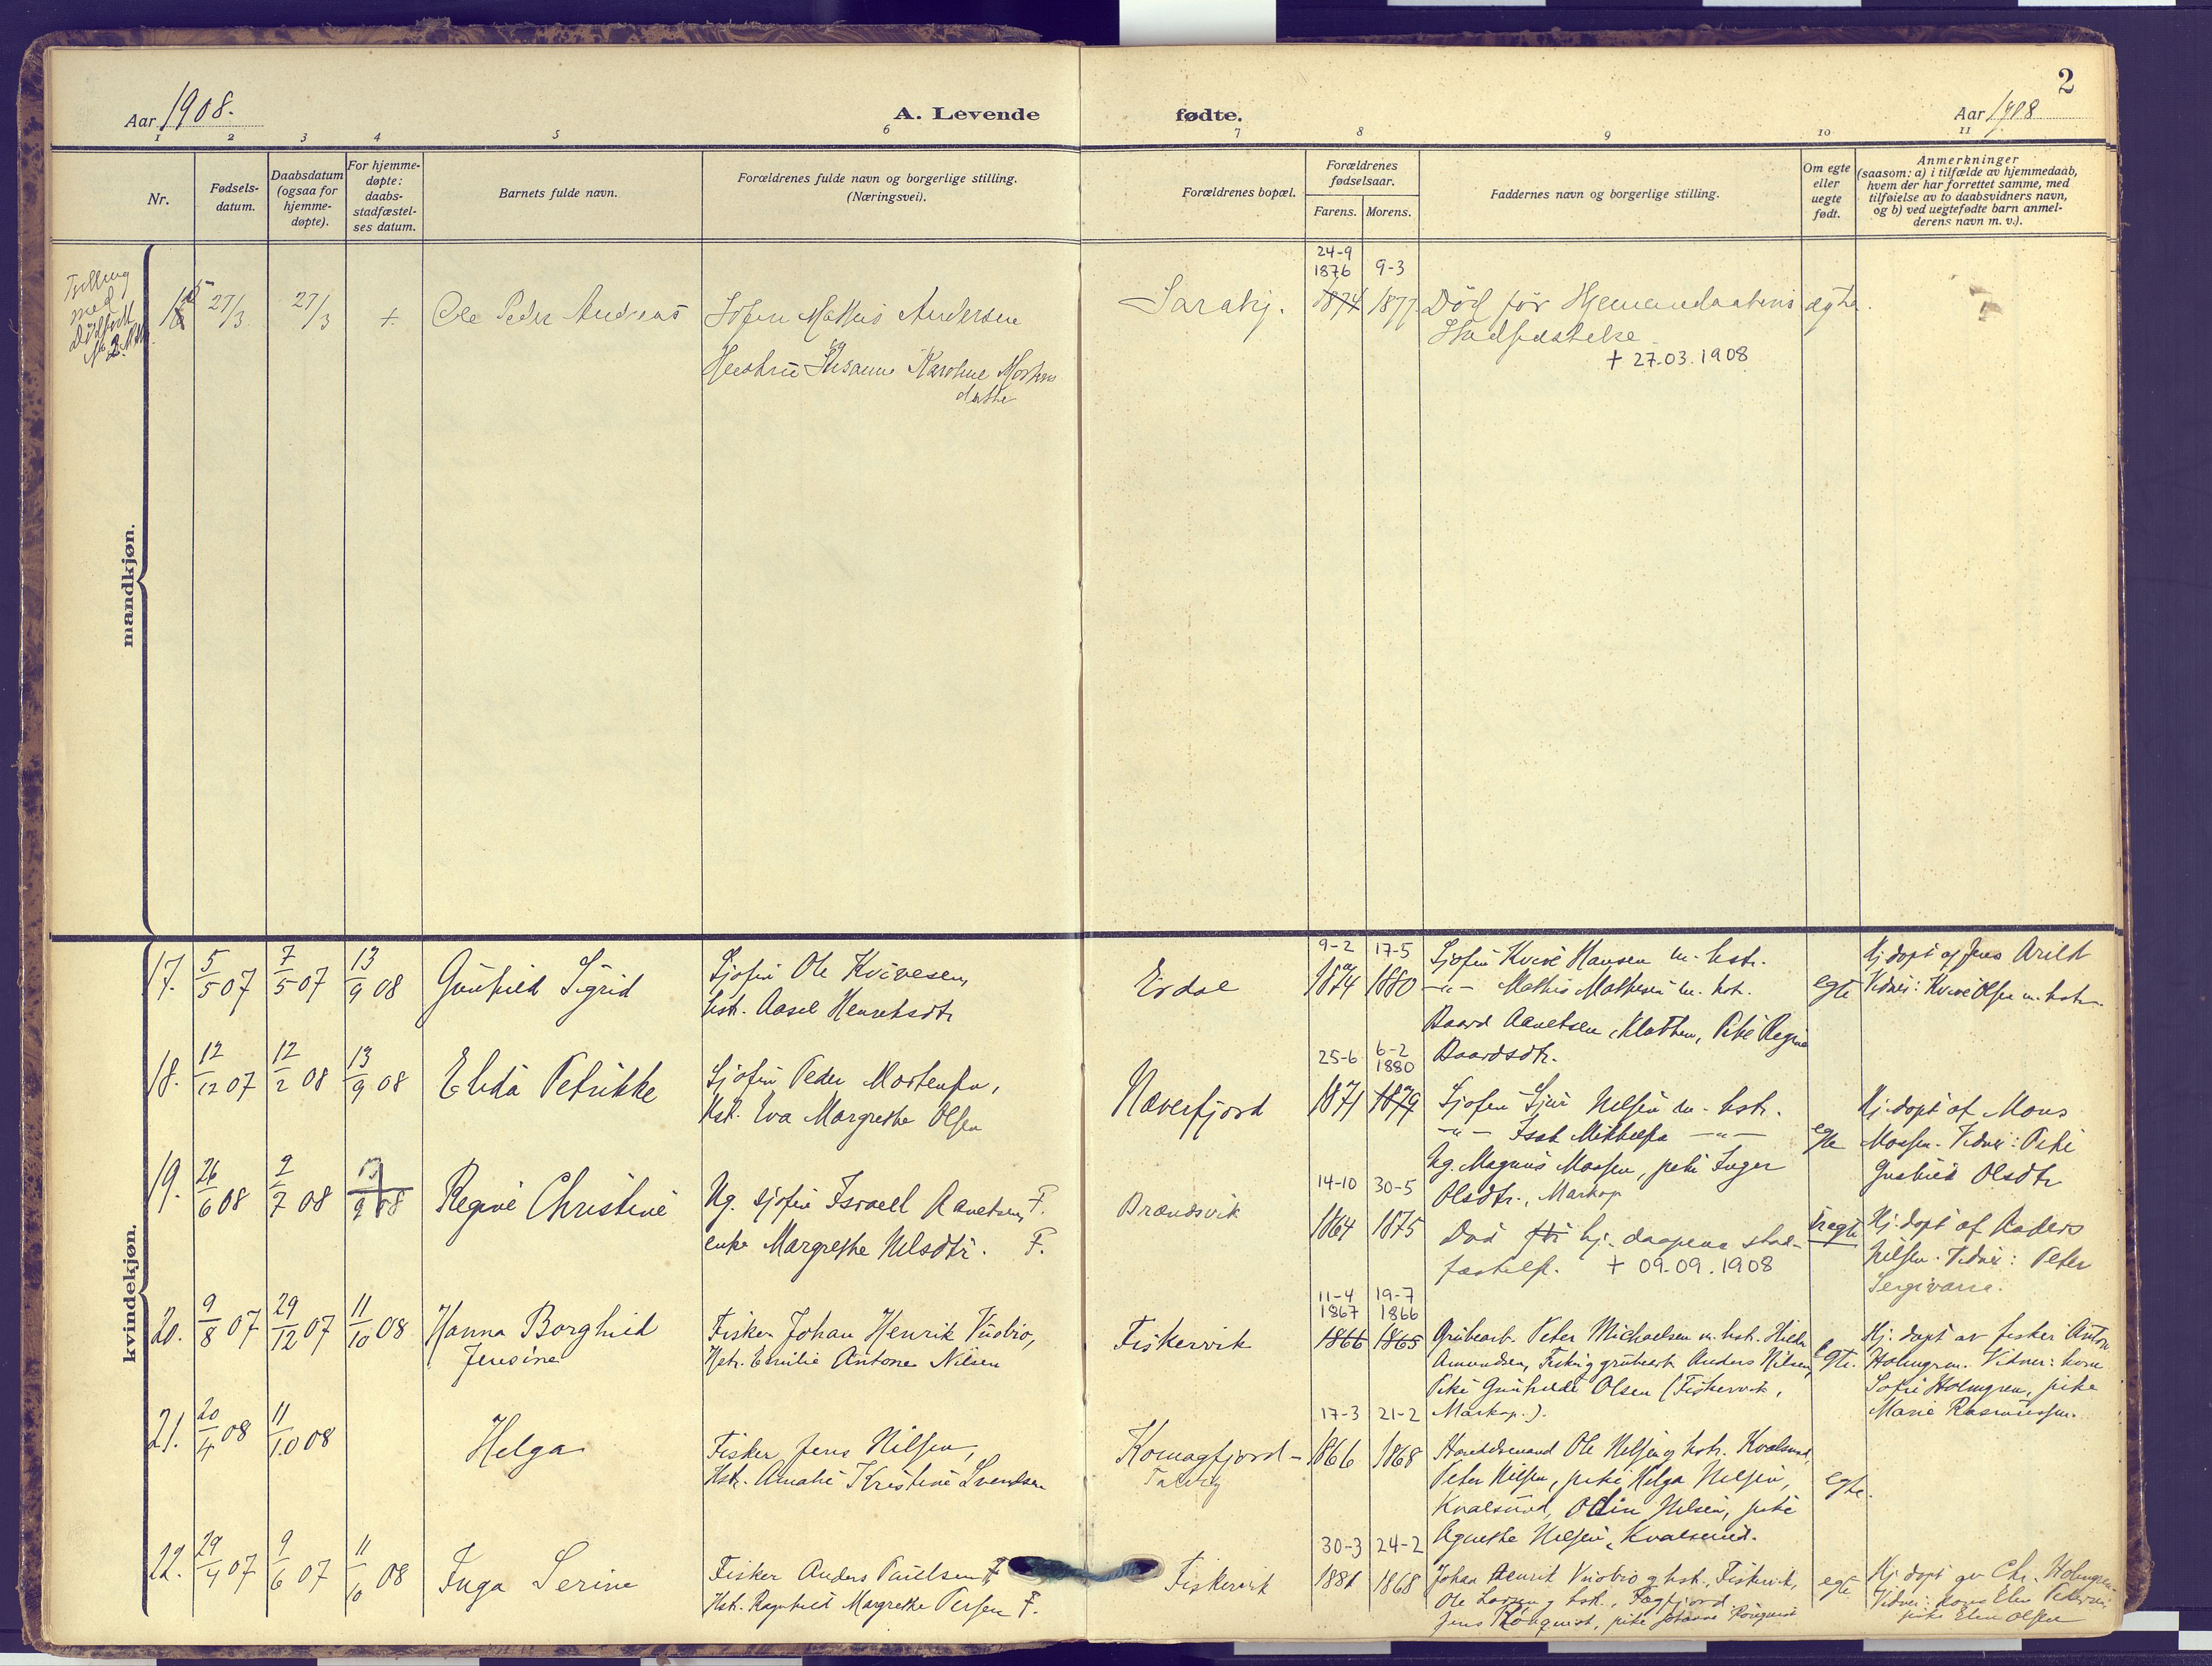 Aar 1908.
A. Levende
fødte.
Aar 1908
2
1 2 3 4 5 6 7 8 9 10 11
Nr.
Fødsels-
datum.
Daabsdatum
(ogsaa for
hjemme-
døpte).
For hjemme-
døpte:
daabs-
stadfæstel-
ses datum.
Barnets fulde navn.
Forældrenes fulde navn og borgerlige stilling.
(Næringsvei).
Forældrenes bopæl.
Forældrenes
fødselsaar.
Farens. Morens.
Faddernes navn og borgerlige stilling.
Om egte
eller
uegte
født.
Anmerkninger
(saasom: a) i tilfælde av hjemmedaab,
hvem der har forrettet samme, med
tilføielse av to daabsvidners navn,
og b) ved uegtefødte barn anmel-
derens navn m. v.).
mandkjøn.
Tvilling
med
Dødfødt
27/3
27/3
+
Ole Peder Andreas
Sofin Mathis Andersen
Susanne Karoline Mortens
datter
Saraby.
24-9
1876
1874
9-3
1877
Død før Hjemmedaabens
Stadfæstelse
+ 27.03.1908
ægte.
kvindekjøn.
17.
5/5 07
7/5 07
13/9 08
Gunhild Sigrid
Sjøfin Ole Kvivesen,
hstr. Aasel Henriksdtr
Erdal
9-2
1874
17-5
1880
Sjøfin Kvive Hansen m. hstr.
-"- Mathis Mathesen m. hstr.
Baard Aanetsen, Klatten, Pike Regine
Baardsdtr.
egte
Hj. døpt af Jens Arild
Vidner: Kvive Olsen m. hstr.
18.
12/12 07
12/2 08
13/9 08
Elida Petrikke
Sjøfin Peder Mortensen,
Hstr. Eva Margrethe Olsen
Næverfjord
25-6
1871
6-2
1880
1879
Sjøfin Sjur Nilsen m. hstr.
-"- Isak Mikkelsen -"-
Ug. Magnus Monsen, pike Inger
Olsdtr., Markop
egte
Hj. døpt af Mons
Monsen. Vidner: Pike
Gunhild Olsdtr
19.
26/6 08
2/7 08
13/9 08
Regine Christine
Ug. sjøfin Israel Aanetsen, F.
enke Margrethe Nilsdtr. F.
Brændsvik
14-10
1864
30-5
1875
Død før hj. daapens stad-
fæstelse. + 09.09.1908
uegte
Hj. døpt af Anders
Nilsen. Vidner: Peter
20.
9/8 07
29/12 07
11/10 08
Hanna Borghild
Jensine
Fisker Johan Henrik Vuobio,
Hstr. Emilie Antone Nilsen
Fiskervik
11-4
1867
1866
19-7
1866
1865
Grubearb. Peter Michaelsen m. hstr. Hilda
Amundsen, Fisker og grubearb. Anders Nilsen,
Pike Gunhilde Olsen (Fiskervik,
Markop.).
egte.
Hj. døpt av fisker Anton
Holmgren. Vidner: kone
Sofie Holmgren, pike
Marie Rasmussen.
21.
20/4 08
11/10 08
Helga
Fisker Jens Nilsen,
Hstr. Amalie Kristine Svendsen
Komagfjord -
Talvik
17-3
1866
21-2
1868
Handelsmand Ole Nilsen og hstr. Kvalsund,
Peter Nilsen, pike Helga Nilsen,
Kvalsund, Odin Nilsen, pike
Agnethe Nilsen, Kvalsund.
egte.
22.
29/4 07
9/6 07
11/10 08
Inga Serine
Fisker Anders Paulsen F
Hstr. Ragnhild Margrethe Persen F.
Fiskervik
30-3
1881
24-2
1868
Johan Henrik Vuobio og hstr., Fiskervik,
Ole Larsen og hstr., Fægfjord
Jens Rönquist, pike Johanne Rönquist
egte
Hj. døpt av Chr. Holmgren.
Vidner: kone Elen Pedersen,
pike Elen Olsen